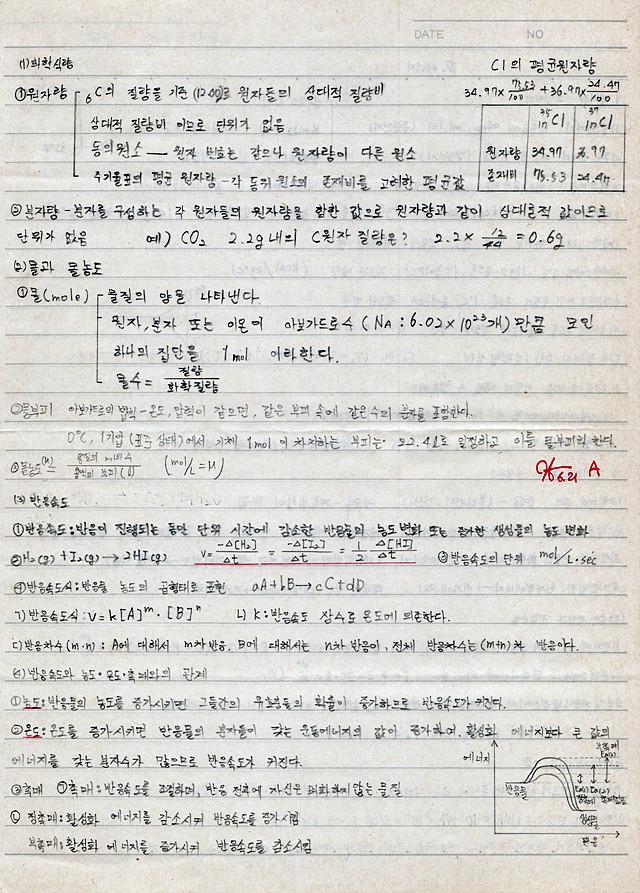 DATE NO
(1) 화학식량
Cl의 평균원자량
①원자량 6C의 질량을 기준(12.00)로 원자들의 상대적 질량비
34.97×75.53/100 + 36.97×24.47/100
상대적 질량비 이므로 단위가 없음
35 17Cl 37 17Cl
동위원소 — 원자 번호는 같으나 원자량이 다른 원소
원자량 34.97 36.97
주기율표의 평균 원자량 - 각 동위 원소의 존재비를 고려한 평균값
존재비 75.53 24.47
②분자량 - 분자를 구성하는 각 원자들의 원자량을 합한 값으로 원자량과 같이 상대론적 값이므로
단위가 없음 예) CO2 2.2g 내의 C원자 질량은? 2.2×12/44 = 0.6g
(2)몰과 몰농도
①몰(mole) 물질의 양을 나타낸다.
원자, 분자 또는 이온이 아보가드로수 (NA : 6.02×10^23개) 만큼 모인
하나의 집단을 1mol 이라한다.
몰수 = 질량/화학질량
②몰부피 아보가드로의 법칙 - 온도, 압력이 같으면, 같은 부피 속에 같은수의 분자를 포함한다.
0°C, 1기압 (표준 상태)에서 기체 1mol 이 차지하는 부피는 22.4l로 일정하고 이를 몰부피라 한다.
③몰농도(M) = 용질의 몰수/용액의 부피(l) (mol/L = M)
6.21 A
(3) 반응속도
①반응속도:반응이 진행되는 동안 단위 시간에 감소한 반응물의 농도변화 또는 증가한 생성물의 농도 변화
②H2(g) + I2(g) → 2HI(g) v = -Δ[H2]/Δt = -Δ[I2]/Δt = 1/2 Δ[HI]/Δt ③반응속도의 단위 mol/L·sec
④반응속도식:반응물 농도의 곱형태로 표현 aA+bB→cC+dD
ㄱ)반응속도식:v=k[A]^m·[B]^n ㄴ) k:반응속도 상수로 온도에 의존한다.
ㄷ)반응차수(m·n) : A에 대해서 m차반응, B에 대해서는 n차 반응이, 전체 반응차수는 (m+n)차 반응이다.
(4)반응속도와 농도·온도·촉매와의 관계
①농도:반응물의 농도를 증가시키면 그들간의 유효충돌의 확률이 증가하므로 반응속도가 커진다.
②온도:온도를 증가시키면 반응물의 분자들이 갖는 운동에너지의 값이 증가하여, 활성화 에너지보다 큰 값의
에너지를 갖는 분자수가 많으므로 반응속도가 커진다.
③촉매 ㉠촉매:반응속도를 조절하며, 반응 전후에 자신은 변화하지 않는 물질
㉡ 정촉매:활성화 에너지를 감소시켜 반응속도를 증가시킴
부촉매:활성화 에너지를 증가시켜 반응속도를 감소시킴
에너지
부촉매
반응물
생성물
반응